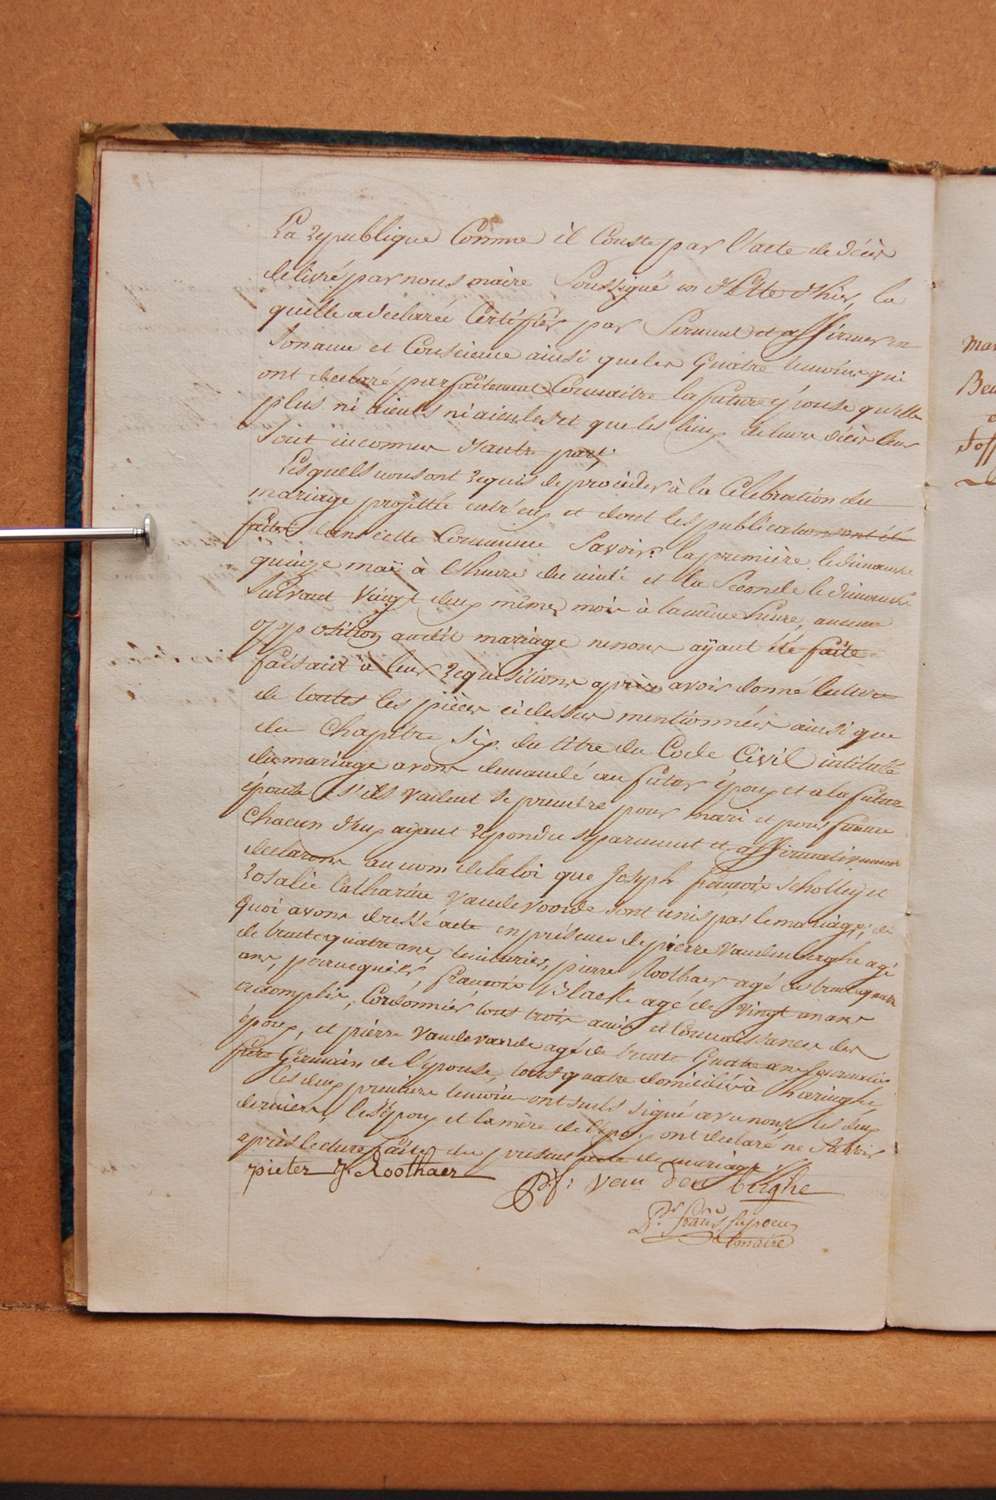 La republique Comme il Conste par l'acte de décès
delivré par nous maire Soussigné en datte d'hier, la
quelle a declarée Certifier par Serment et affirmer en
Son ame et Conscience ainsi que les Quatre temoins qui
ont declaré parfaitement Connaitre la future épouse qu'elle
plus ni aieuls ni aieules et que les lieux de leurs décès leur
Sont inconnus d'autre part.
Lesquels nous ont requis de procéder à la Célébration du
mariage projetté entr'eux et dont les publications ont été
faites dans cette Commune Savoir: la première, le dimanche
quinze maÿ à l'heure de midi et la Seconde le dimanche
Suivant Vingt deux même mois à la même heure, aucune
opposition audit mariage ne nous aÿant été faite
faisait à leurs requisitions après avoir donné lecture
de toutes les pièces ci dessus mentionnées ainsi que
du Chapitre Six du titre du Code Civil intitulé
du mariage avons demandé au futur époux et à la future
épouse s'ils veulent se prendre pour mari et pour femme
Chacun d'eux aÿant repondu separement et affirmativement
declarons au nom de la loi que Joseph françois Scholley et
Rosalie Catharine Vandevoorde sont unis par le mariage; de
quoi avons dressé acte en présence de pierre Vandenberghe agé
de trente quatre ans, teinturier, pierre Roothaer agé de
ans, peruequier, françois Vlaeke agé de Vingt un ans
accomplis, Cordonnier tous trois amis et Connaissances des
époux, et pierre Vandevoorde agé de trente Quatre ans journalier
frère Germain de l'épouse, tous quatre domiciliés à haringhe,
les deux premiers temoins ont seuls signé avec nous, les deux
derniers, les époux et la mère de l'époux ont declaré ne Savoir
après lecture faite du présent acte de mariage.
pieter J. Roothaer
P: F: van den berghe
maire